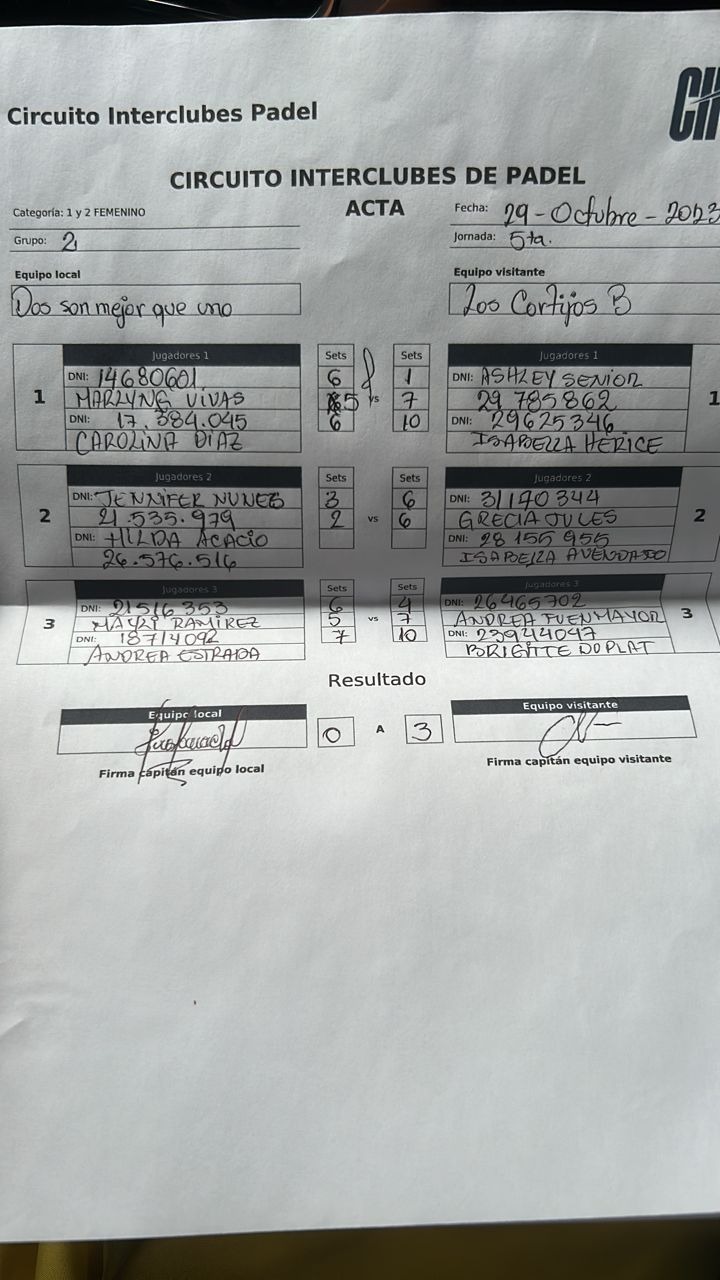 Circuito Interclubes Padel
CIRCUITO INTERCLUBES DE PADEL
ACTA
Categoría: 1 y 2 FEMENINO
Grupo: 2
Fecha: 29-Octubre-2023
Jornada: 5ta.
Equipo local
Dos son mejor que uno
Equipo visitante
Los Cortijos B
1 Jugadores 1 Sets Sets Jugadores 1 1
DNI: 14680601 6 1 DNI: ASHLEY SENIOR
MARLYNG VIVAS 5 vs 7 29 785862
DNI: 17.384.045 6 10 DNI: 29625346
CAROLINA DIAZ ISABELLA HERICE
2 Jugadores 2 Sets Sets Jugadores 2 2
DNI: JENNIFER NUNES 3 6 DNI: 31170344
21.535.979 2 vs 6 GRECIA JULES
DNI: HILDA ACACIO DNI: 28 155 955
26.576.516 ISABELLA AVENDAÑO
3 Jugadores 3 Sets Sets Jugadores 3 3
DNI: 21516353 6 4 DNI: 26465702
MAYRI RAMIREZ 5 vs 7 ANDREA FUENMAYOR
DNI: 18714092 7 10 DNI: 23944047
ANDREA ESTRADA BRIGITTE DOPLAT
Resultado
Equipo local 0 A 3 Equipo visitante
Firma capitán equipo local
Firma capitán equipo visitante